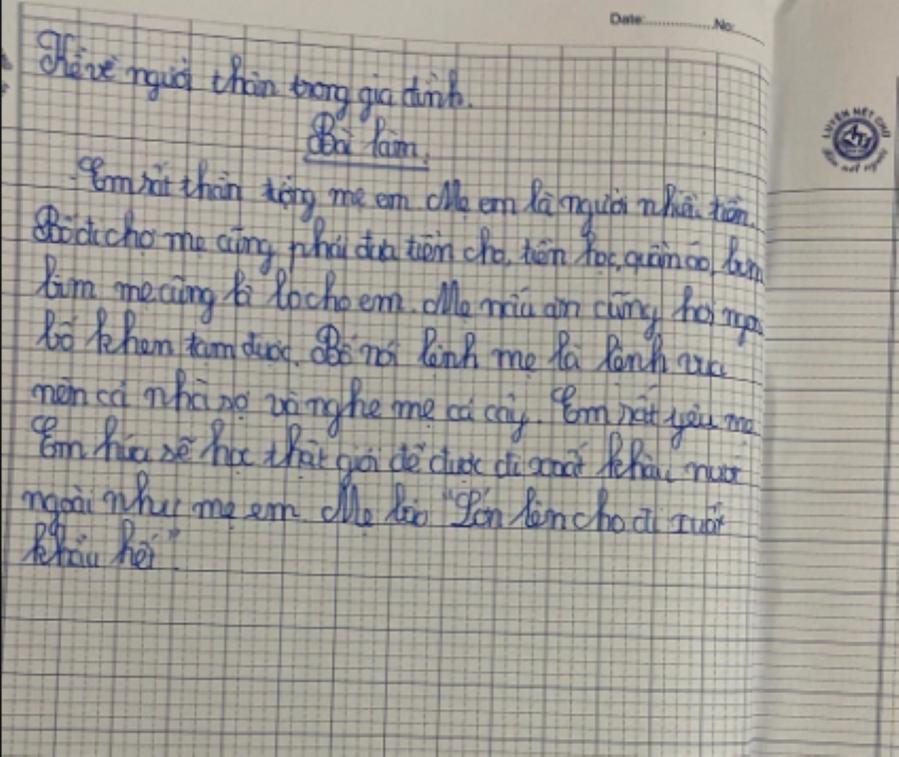 Date: No:
Kể về người thân trong gia đình.
Bài làm.
Em rất thần tượng mẹ em. Mẹ em là người nhiều tiền.
Bố đi chợ mẹ cũng phải đưa tiền cho, tiền học, quần áo, bim
bim mẹ cũng lo cho em. Mẹ nấu ăn cũng hơi ngon
bố khen tạm được. Bố nói lệnh mẹ là lệnh vua
nên cả nhà sợ và nghe mẹ cả cây. Em rất yêu mẹ
Em hứa sẽ học thật giỏi để được đi xoất khẩu nước
ngoài như mẹ em. Mẹ bảo "Lớn lên cho đi xuất
khẩu hết".
LUYỆN NÉT CHỮ
RÈN NẾT NGƯỜI